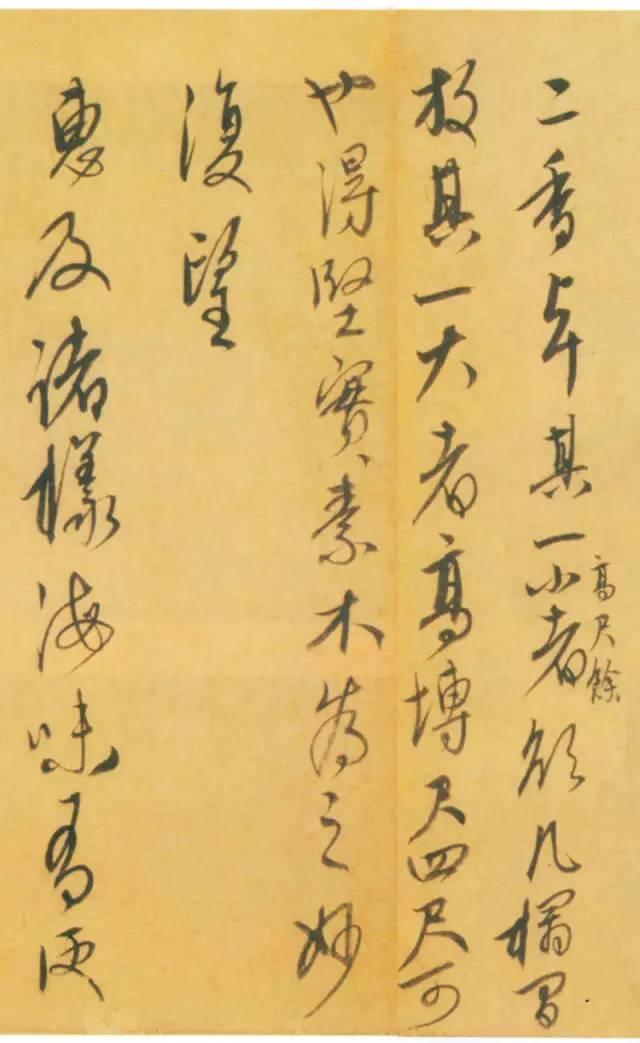 二香卓其一小者欲几榻間
高尺餘
放其一大者高塼尺四尺可
也得堅實素木為之妙
復望
惠及諸樣海味有便